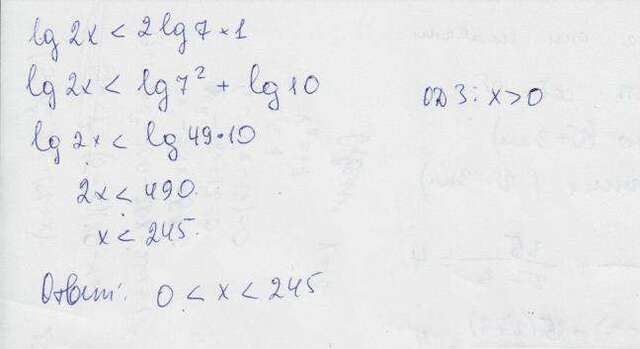 lg 2x < 2 lg 7 + 1
lg 2x < lg 7² + lg 10
ОДЗ: x > 0
lg 2x < lg 49·10
2x < 490.
x < 245.
Ответ: 0 < x < 245